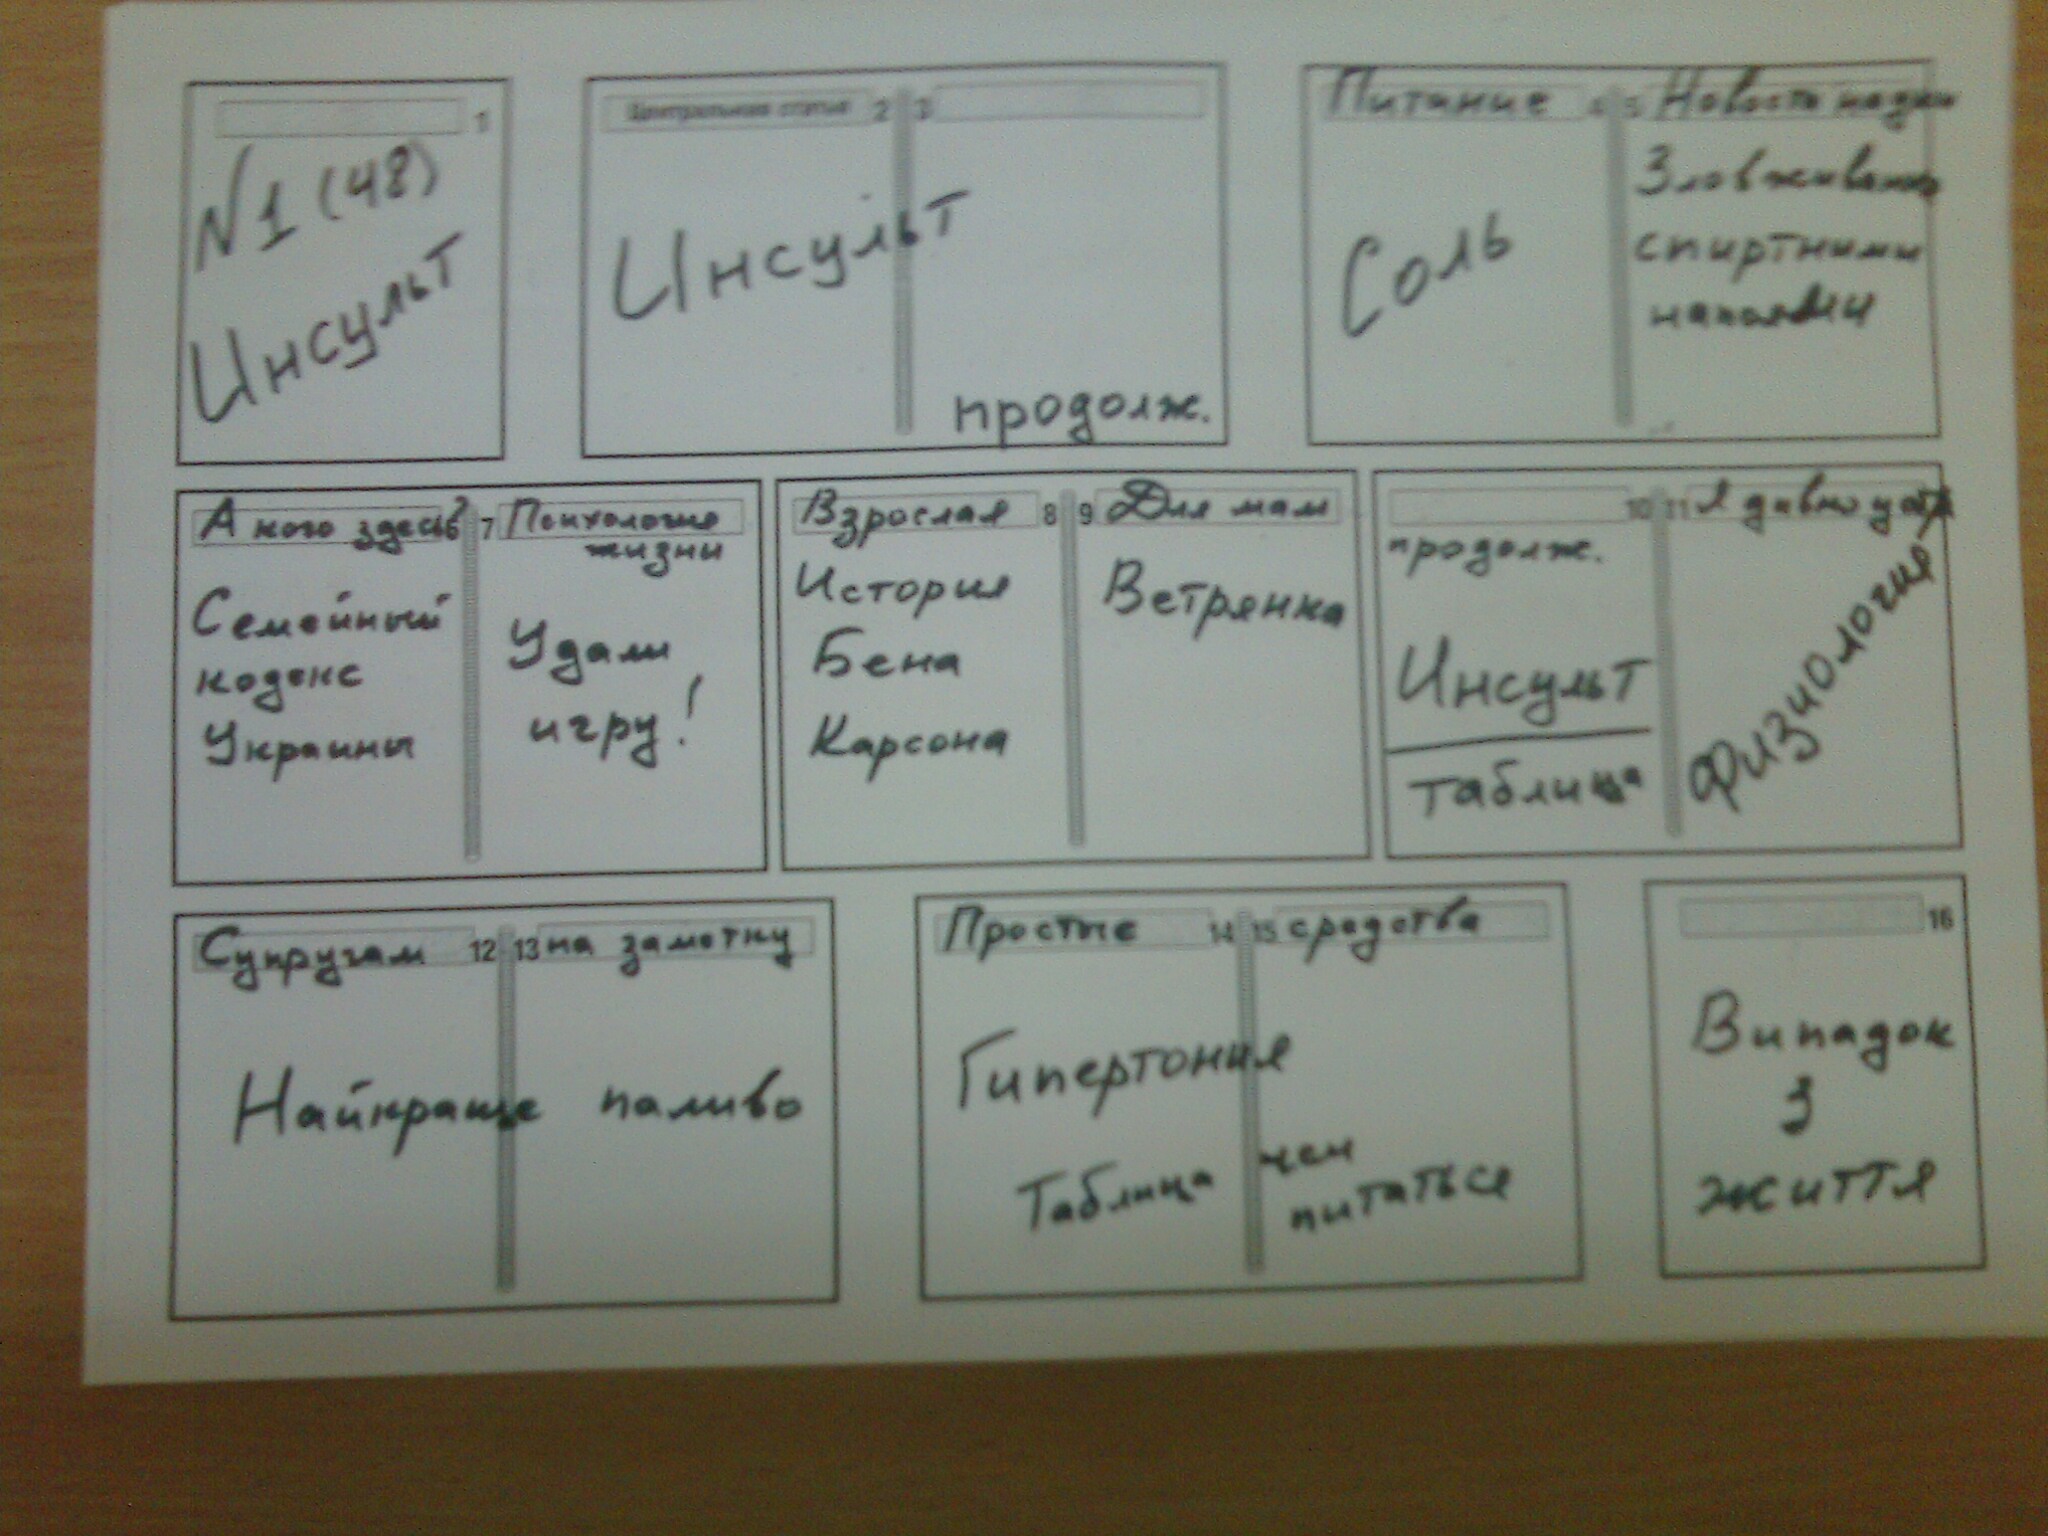 1
N1 (48)
Инсульт
Центральная статья 2
3
Инсульт
продолж.
Питание 4
5 Новости науки
Соль
Зловживання
спиртними
напоями
А кого здесь? 6
Семейный
кодекс
Украины
7 Психология
жизни
Удали
игру!
Взрослая 8
История
Бена
Карсона
9 Для мам
Ветрянка
10
продолж.
Инсульт
таблица
11 Я дивно
Физиология
Супругам 12
13 на заметку
Найкраще паливо
Простые 14
15 средства
Гипертония
Таблица чем
питаться
16
Випадок
з
життя